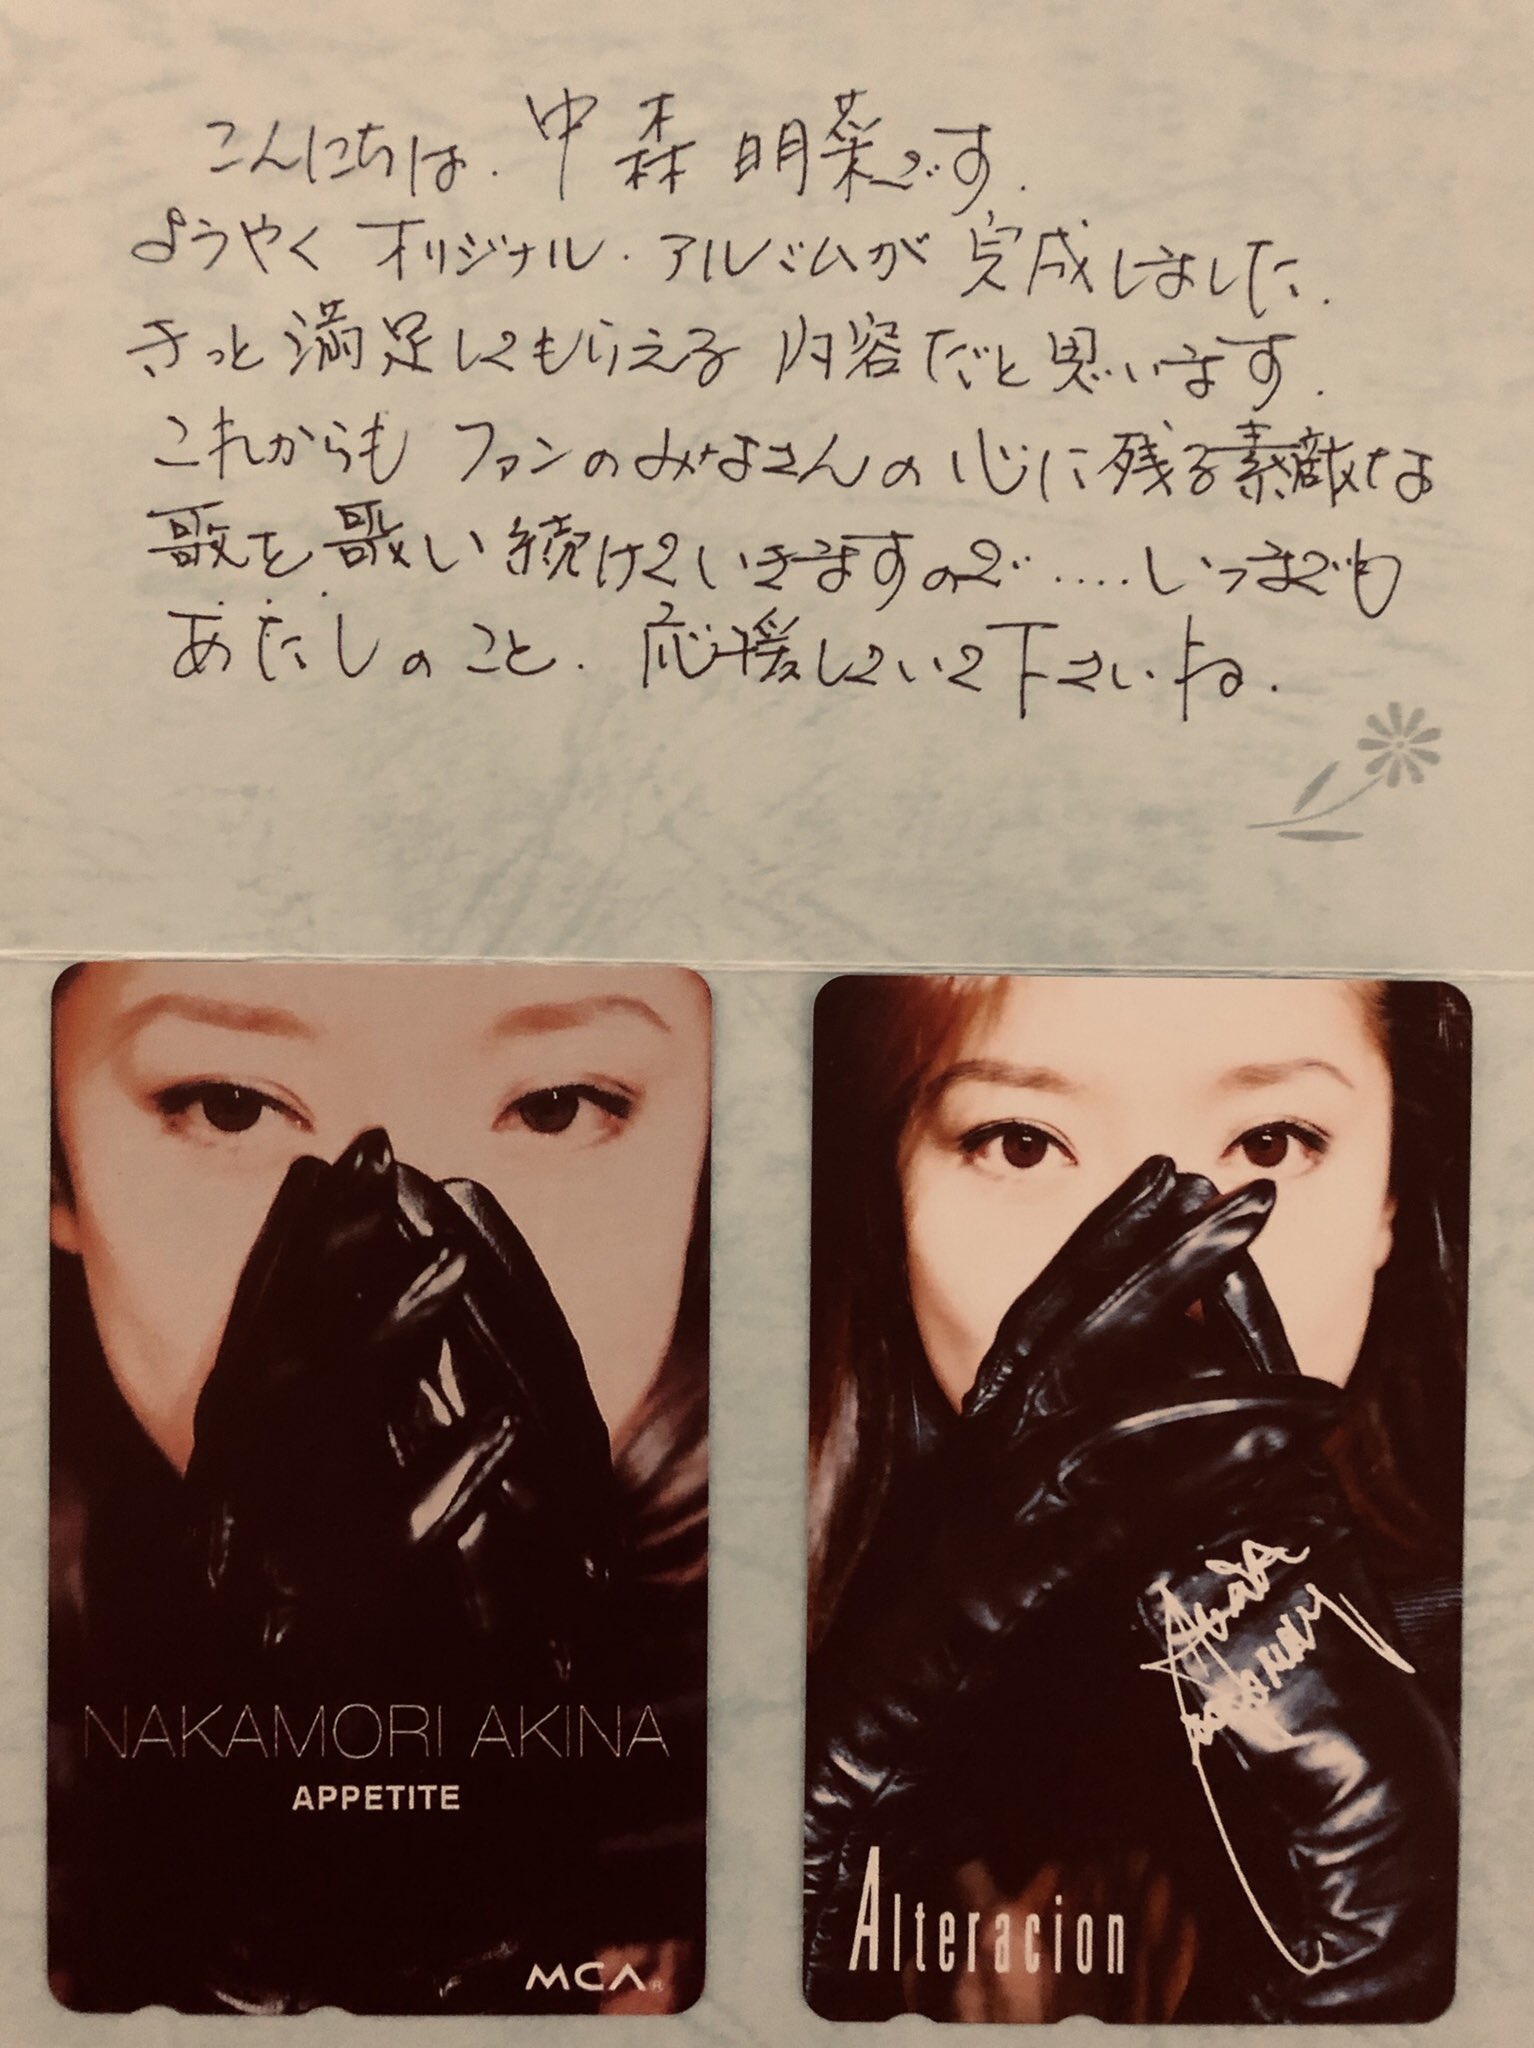 こんにちは. 中森明菜です.
ようやく オリジナル・アルバムが 完成しました.
きっと 満足してもらえる 内容だと思います.
これからも ファンのみなさんの 心に残る素敵な
歌を歌い続けていきますので‥‥いつまでも
あたしのこと. 応援していて下さいよね.
NAKAMORI AKINA
APPETITE
MCA
Alteracion